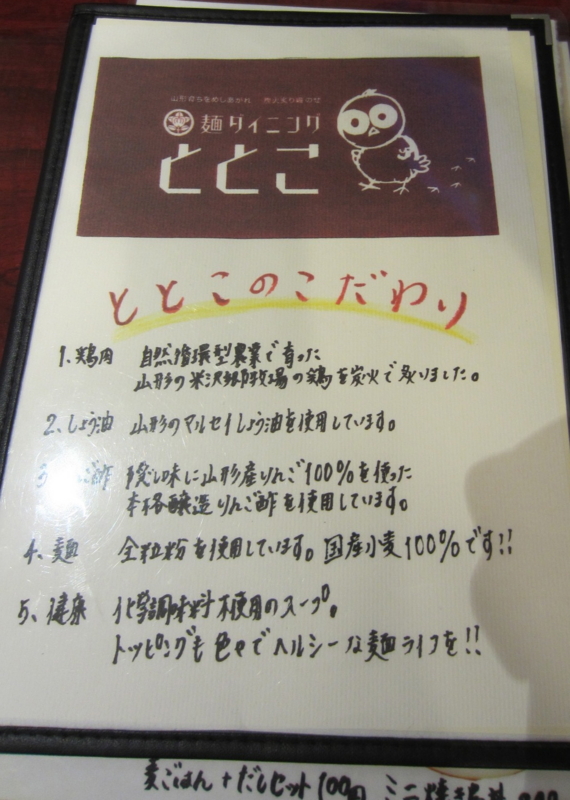 麺ダイニング
ととこ
ととこのこだわり
1、鶏肉 自然循環型農業で育った
山形の米沢郷牧場の鶏を炭火で炙りました。
2、しょう油 山形のマルセイしょう油を使用しています。
3 ご酢 隠し味に山形産りんご100%を使った
本格醸造りんご酢を使用しています。
4、麺 全粒粉を使用しています。国産小麦100%です!!
5、健康 化学調味料不使用のスープ。
トッピングも色々でヘルシーな麺ライフを!!
麦ごはん+だしセット100円 ミニ